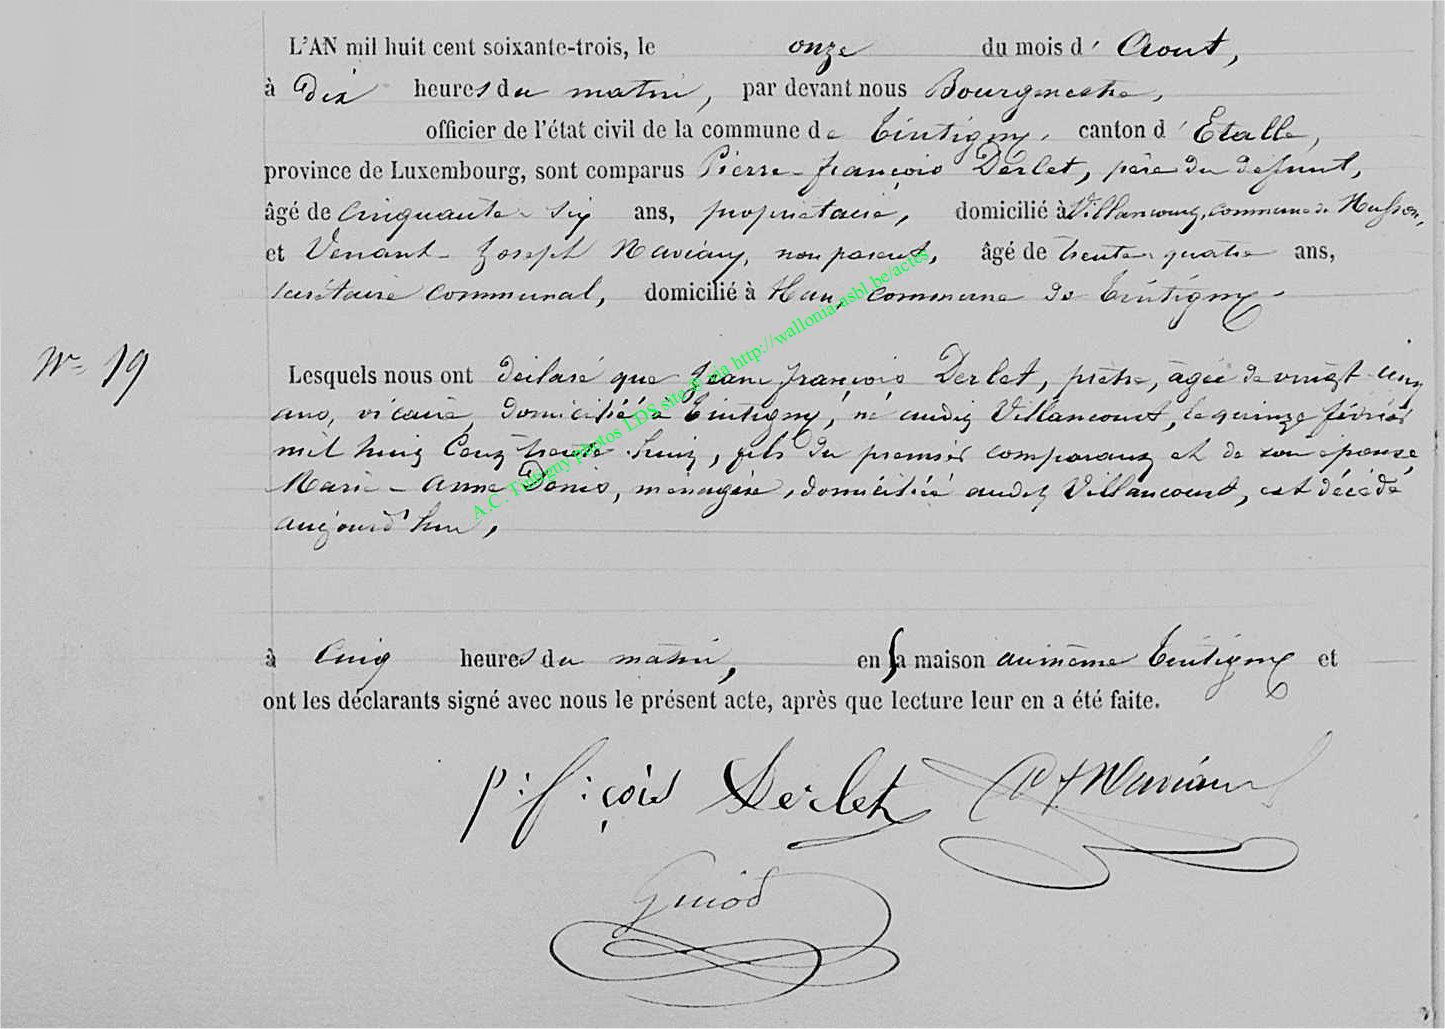 L'AN mil huit cent soixante-trois, le onze du mois d' Aout,
à Dix heures du matin, par devant nous Bourgmestre,
officier de l'état civil de la commune de Tintigny, canton d' Etalle,
province de Luxembourg, sont comparus Pierre-françois Derlet, père du defunt,
âgé de Cinquante-six ans, propriétaire, domicilié à Villancourt, commune de Musson,
et Venant-Joseph Naviaux, non parent, âgé de trente-quatre ans,
secrétaire communal, domicilié à Han, commune de Tintigny.
N° 19
Lesquels nous ont déclaré que Jean françois Derlet, prêtre, âgée de vingt cinq
ans, vicaire, domicilié à Tintigny, né audit Villancourt, le quinze février
mil huit cent trente-huit, fils du premier comparant et de son épouse,
Marie-Anne Denis, ménagère, domiciliée audit Villancourt, est décédé
aujourd'hui,
à Cinq heures du matin, en sa maison au même Tintigny et
ont les déclarants signé avec nous le présent acte, après que lecture leur en a été faite.
p: f: çois Derlet Naviaux
Guiod
A.C. Tintigny photos LDS site @ via http://wallonia-asbl.be/actes